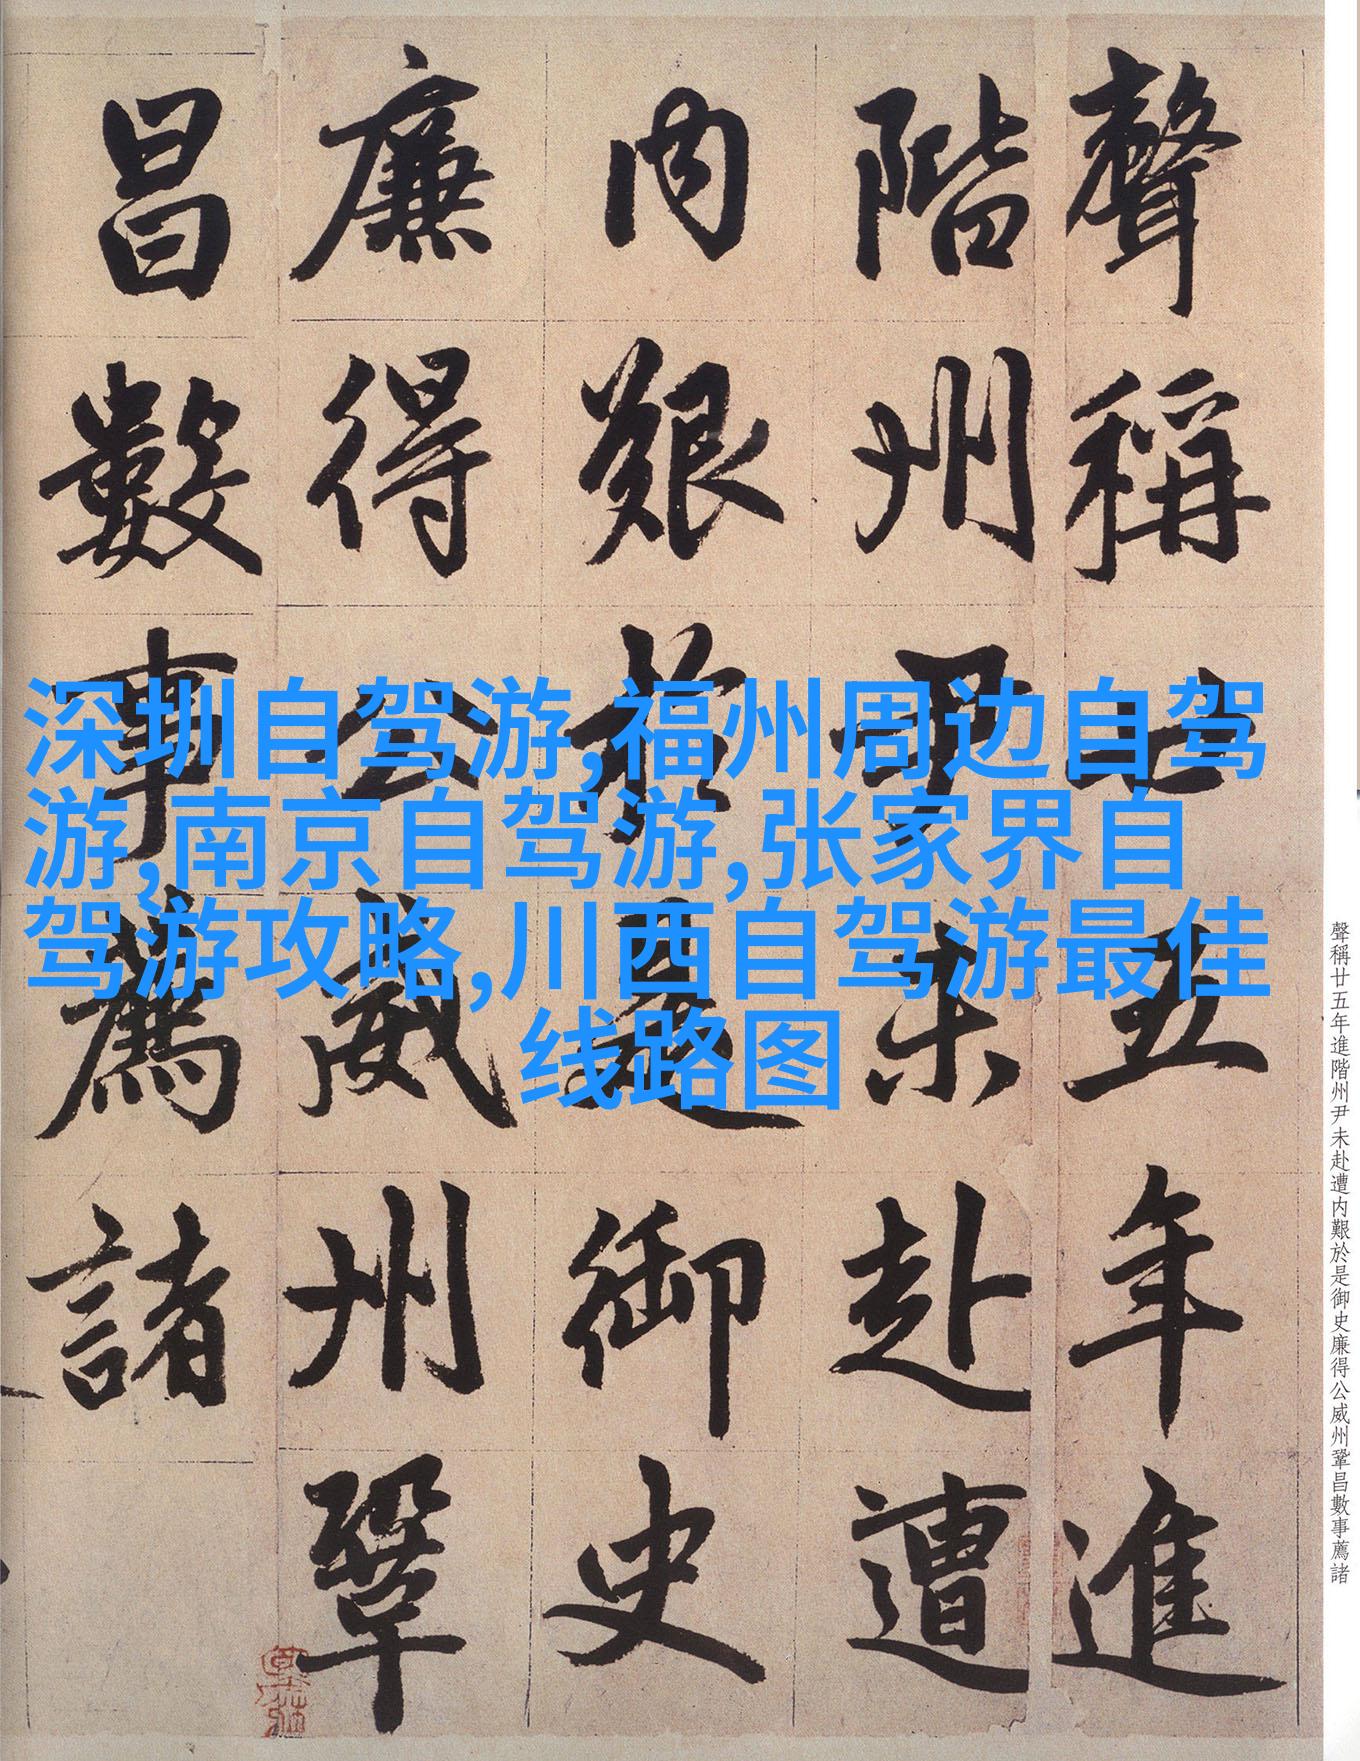 聲稱廿五年進
階州尹未赴遭
内艱於是御史
廉得公威州鞏
昌數事薦諸
深圳自驾游,福州周边自驾
游,南京自驾游,张家界自
驾游攻略,川西自驾游最佳
线路图
聲稱廿五年進階州尹未赴遭内艱於是御史廉得公威州鞏昌數事薦諸